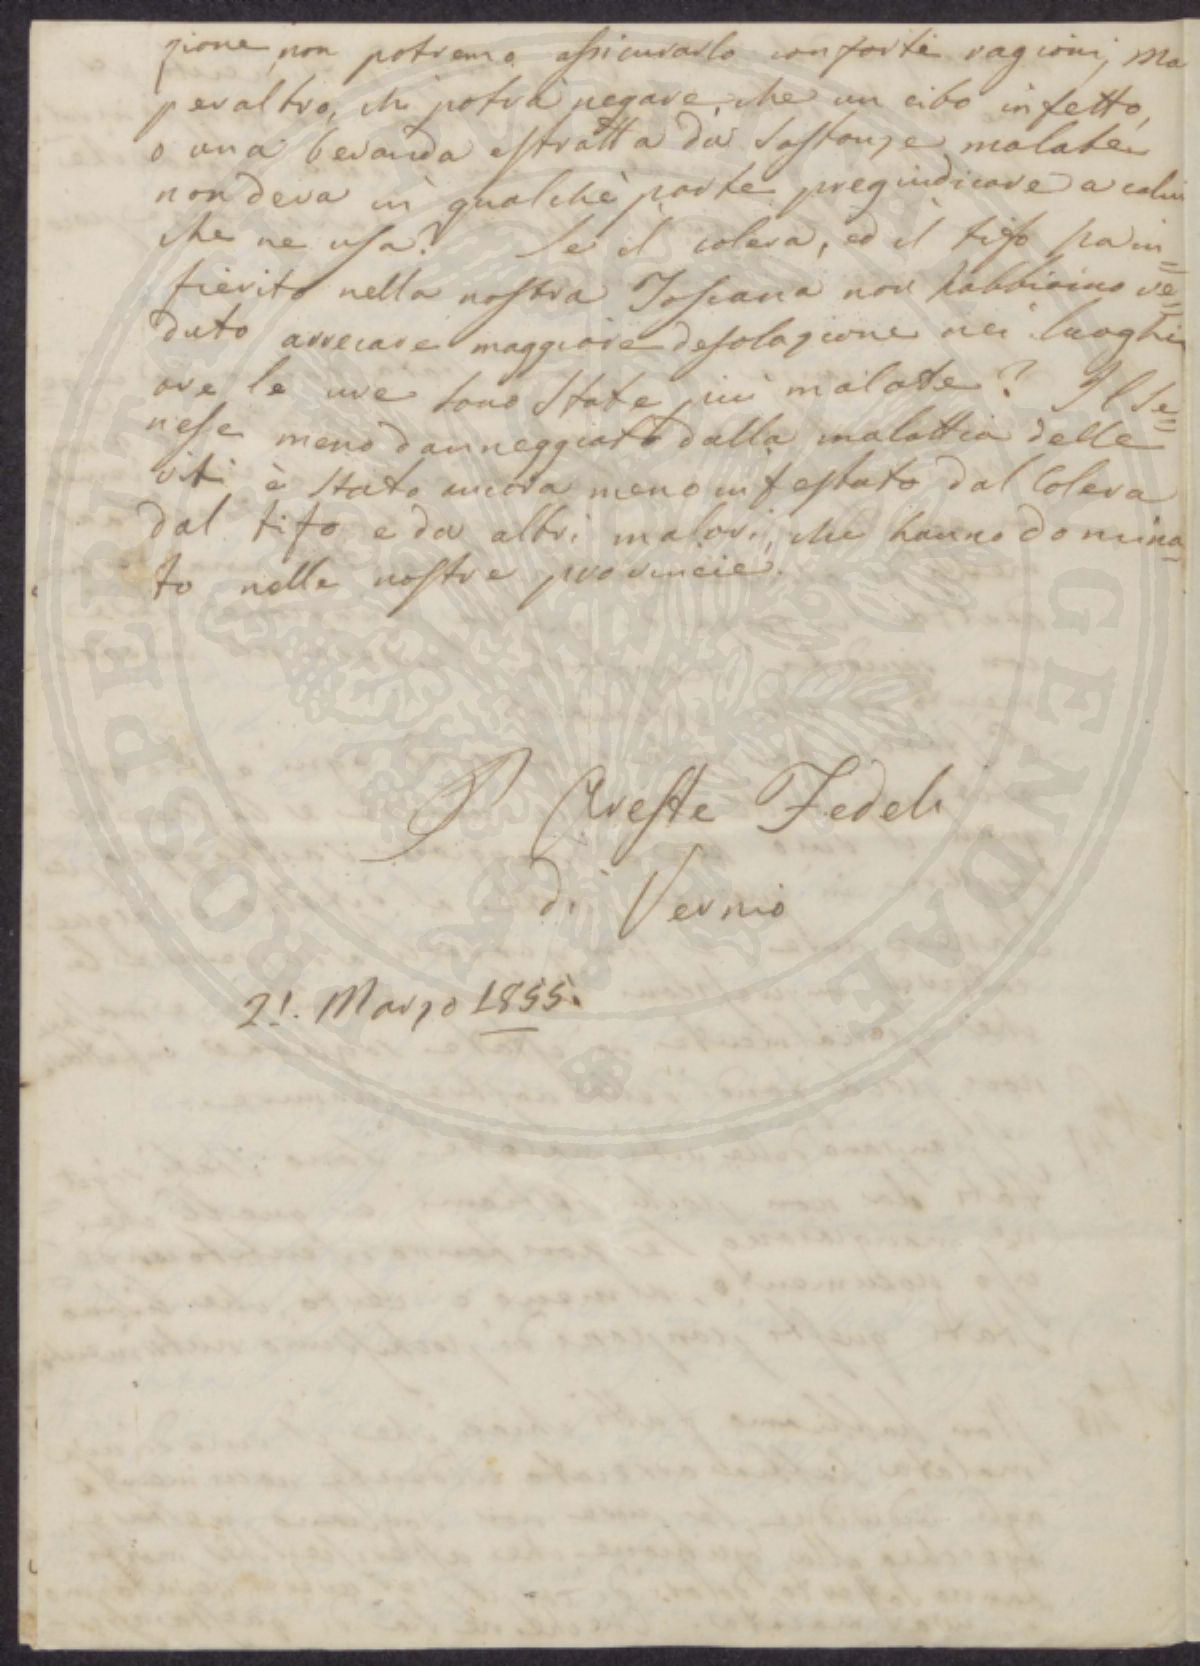 zione non potremo assicurarlo con forti ragioni; ma
peraltro, chi potrà negare, che un cibo infetto,
o una bevanda estratta da sostanze malate
non deva in qualchè parte pregiudicare a colui
che ne usa? Se il colera, ed il tifo ha in=
fierito nella nostra Toscana non habbiamo ve=
duto arrecare maggiore desolazione nei luoghi
ove le uve sono state più malate? Il Se=
nese meno danneggiato dalla malattia delle
viti è stato ancora meno infestato dal Colera
dal tifo e da altri malori, che hanno domina=
to nelle nostre provincie.
Oreste Fedeli
di Vernio
21. Marzo 1855.
PROSPERITATI PUBLICAE AUGENDAE